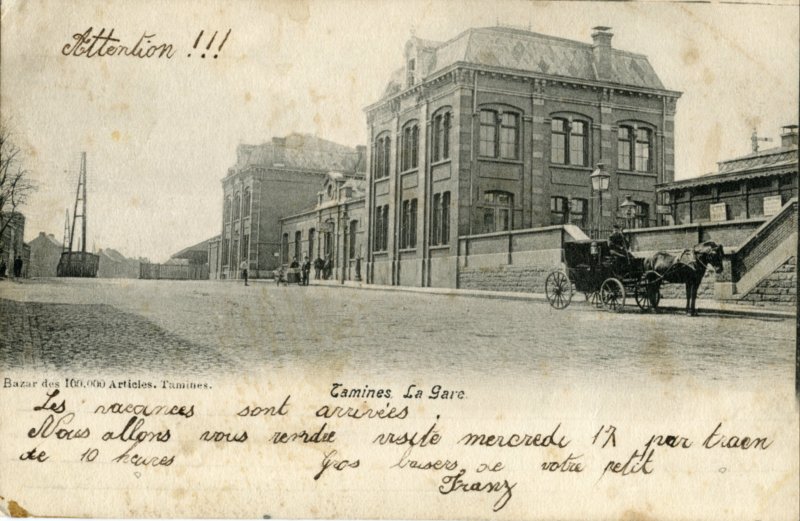 Attention !!!
Bazar des 100,000 Articles. Tamines.
Tamines. La Gare.
Les vacances sont arrivées.
Nous allons vous rendre visite mercredi 17 par train
de 10 heures Gros baisers de votre petit
Franz